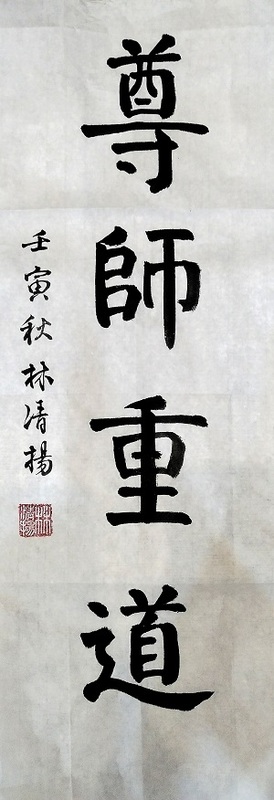 尊師重道
壬寅秋林清揚